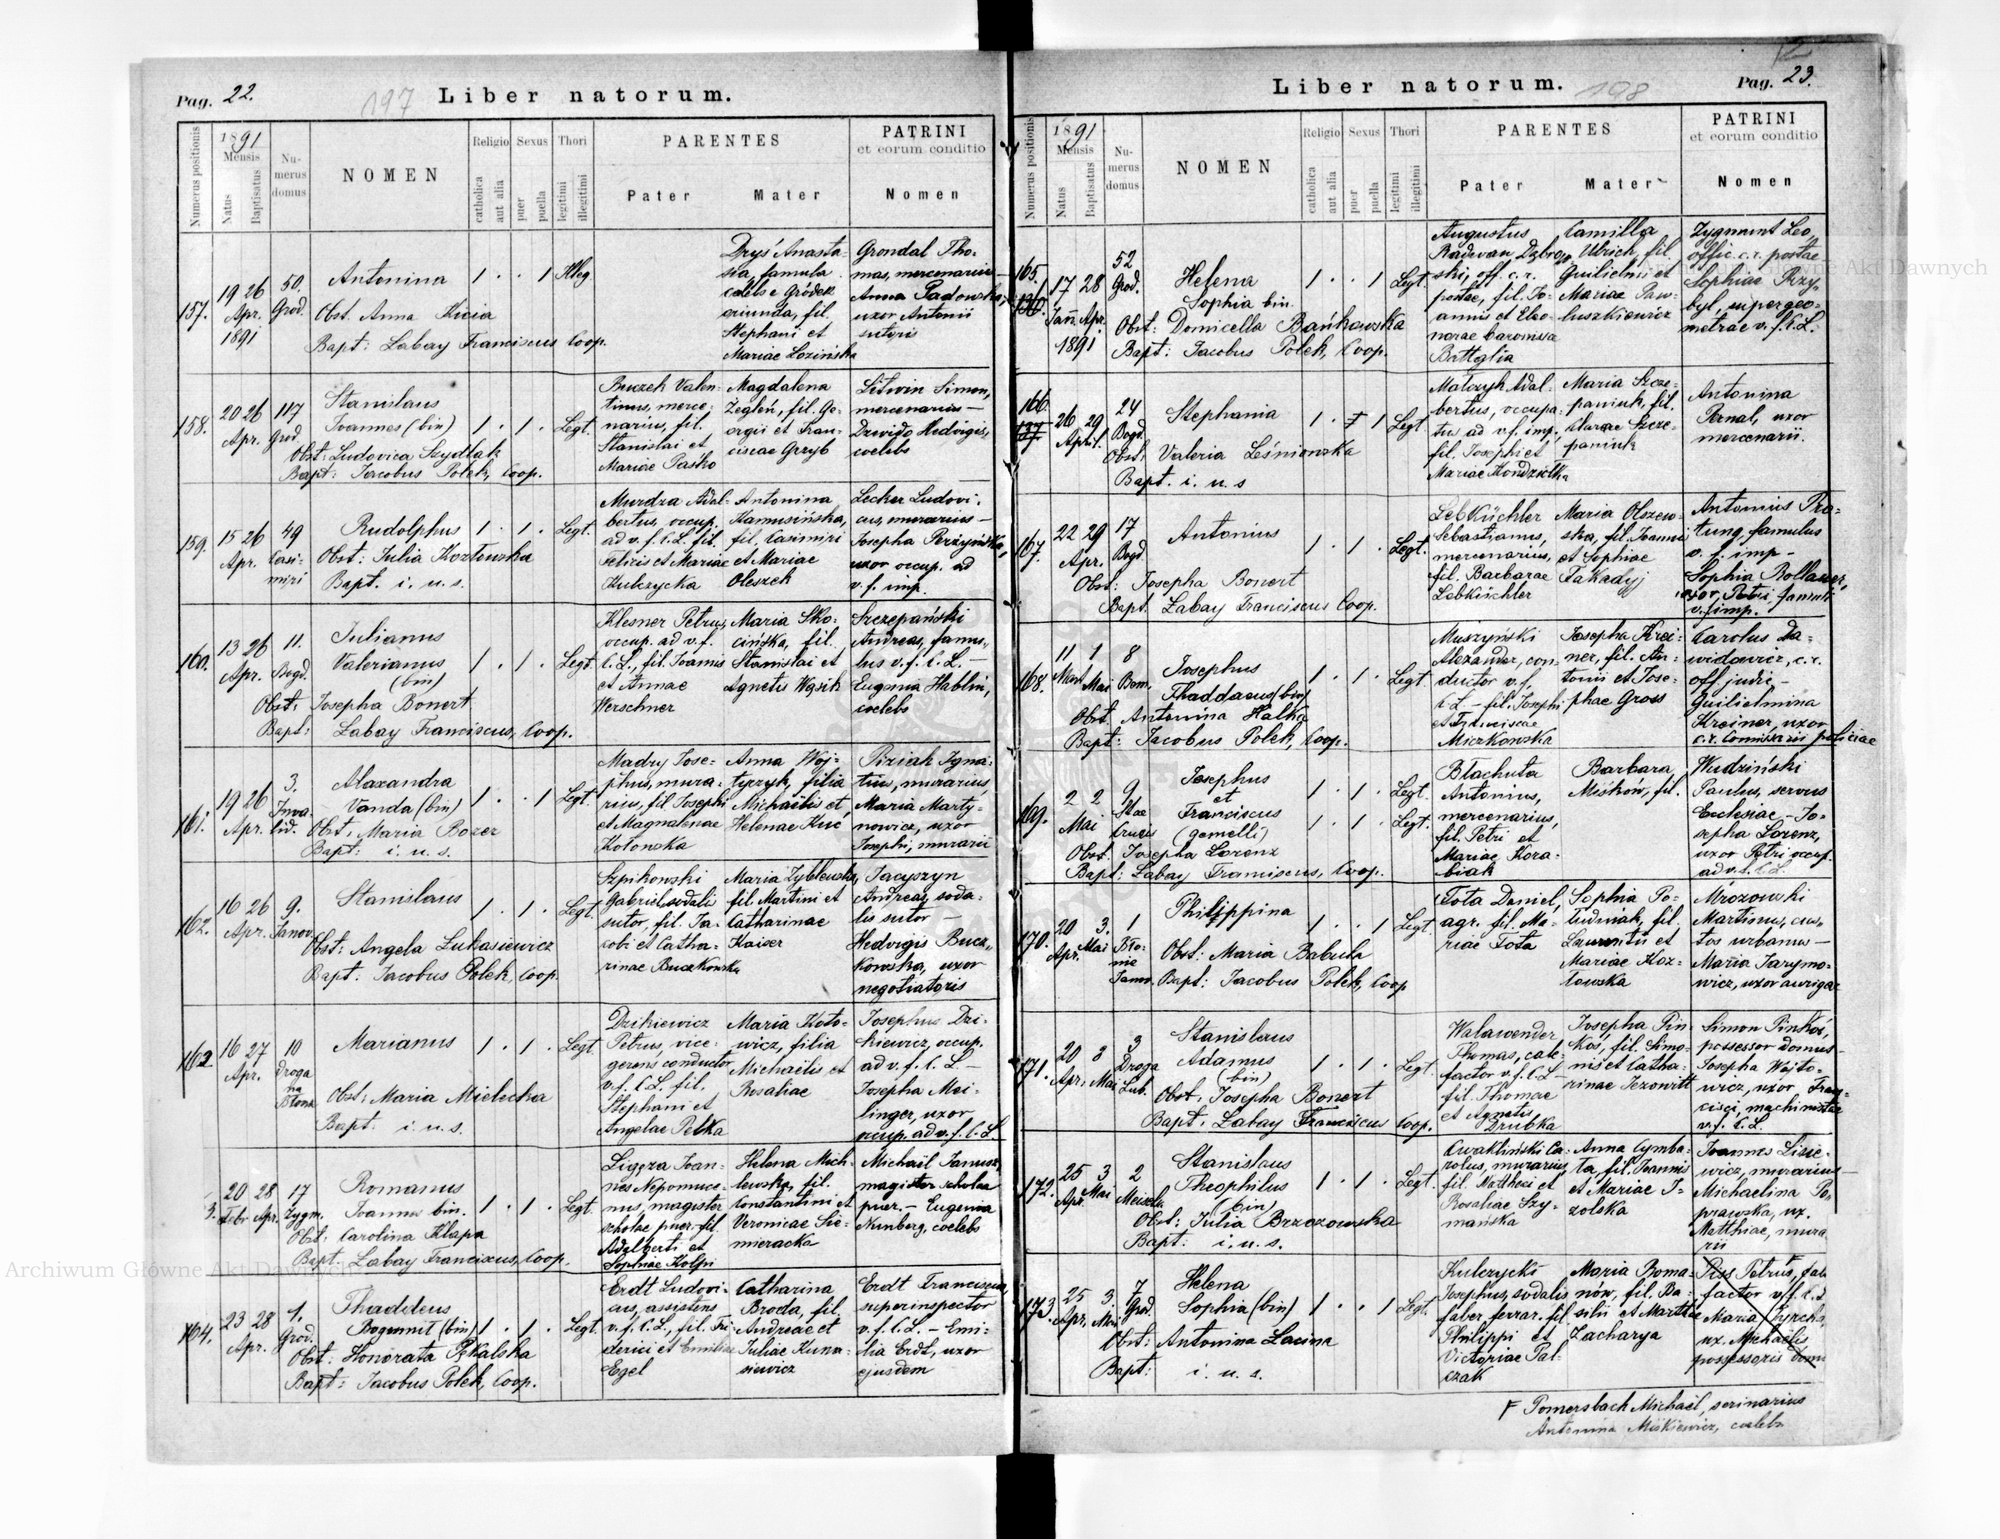 Pag. 22.
197
Liber natorum.
Numerus positionis
1891
Mensis
Natus
Baptisatus
Numerus domus
NOMEN
Religio
catholica
aut alia
Sexus
puer
puella
Thori
legitimi
illegitimi
PARENTES
Pater
Mater
PATRINI
et eorum conditio
Nomen
157.
19 26
Apr.
1891
50.
Grod.
Antonina
1 . . 1 Illeg.
Obst. Anna Kicia
Bapt: Labay Franciscus Coop.
Dryś Anasta-
sia, famula
caelebs e Gródek
oriunda, fil.
Stephani et
Mariae Lozińska
Grondal Tho-
mas, mercenarius –
Anna Padowska,
uxor Antonii
sutoris
158.
20 26
Apr.
117
Grod
Stanislaus
Joannes (bin)
1 . 1 . Legt.
Obst: Ludovica Szydłak
Bapt: Jacobus Polek, Coop.
Buczek Valen-
tinus, merce-
narius, fil.
Stanislai et
Mariae Paśko
Magdalena
Zegleń, fil. Ge-
orgii et Fran-
ciscae Grzyb
Litwin Simon,
mercenarius –
Dzwido Hedvigis,
coelebs
159.
15 26
Apr.
49
Casi-
miri
Rudolphus
1 . 1 . Legt.
Obst: Julia Kozłowska
Bapt. i. u. s.
Murdza Adal-
bertus, occup.
ad v. f. C. L. fil.
Felicis et Mariae
Kulczycka
Antonina
Hamusińska,
fil. Casimiri
et Mariae
Oleszek
Lecker Ludovi-
cus, murarius –
Josepha Perzyńska,
uxor occup. ad
v. f. imp.
160.
13 26
Apr.
11.
Bogd.
Julianus
Valerianus
(bin)
1 . 1 . Legt.
Obst: Josepha Bonert
Bapt: Labay Franciscus, Coop.
Klesner Petrus,
occup. ad v. f.
C. L., fil. Joannis
et Annae
Werschner
Maria Sko-
cińska, fil.
Stanislai et
Agnetis Wąsik
Szczepański
Andreas, famu-
lus v. f. C. L. –
Eugenia Hablin,
coelebs
161.
19 26
Apr.
3.
Inva-
lid.
Alexandra
Vanda (bin)
1 . . 1 Legt.
Obst: Maria Bozer
Bapt: i. u. s.
Madry Jose-
phus, mura-
rius, fil Josephi
et Magnalenae
Kotowska
Anna Woj-
tyczyk, filia
Michaëlis et
Helenae Kuć
Piziak Igna-
tius, murarius,
Maria Marty-
nowicz, uxor
Josephi, murarii
162.
16 26
Apr.
9.
Janov.
Stanislaus
1 . 1 . Legt.
Obst: Angela Lukasiewicz
Bapt: Jacobus Polek, Coop.
Szpikowski
Gabriel, sodalis
sutor, fil. Ja-
cobi et Catha-
rinae Buczkowska
Maria Zyblewska,
fil Martini et
Catharinae
Kaiser
Jacyszyn
Andreas, soda-
lis sutor –
Hedvigis Bucz-
kowska, uxor
negotiatoris
162
16 27
Apr.
10
Droga
na
Błonie
Marianus
1 . 1 . Legt
Obst: Maria Mielecka
Bapt: i. u. s.
Dzikiewicz
Petrus, vice-
gerens conductor
v. f. C. L. fil.
Stephani et
Angelae Pełka
Maria Koto-
wicz, filia
Michaëlis et
Rosaliae
Josephus Dzi-
kiewicz, occup.
ad v. f. C. L. –
Josepha Mai-
linger, uxor
occup. ad v. f. C. L.
20 28
Febr Apr.
17
Zygm.
Romanus
Joannes bin.
1 . 1 . Legt.
Obst: Carolina Klapa
Bapt. Labay Franciscus, Coop.
Ligęza Joan-
nes Nepomuce-
nus, magister
scholae puer. fil.
Adalberti et
Sophiae Kolpi
Helena Mich-
lewska, fil.
Constantini et
Veronicae Sie-
mieracka
Michaël Janusz,
magister scholae
puer. – Eugenia
Nunberg, coelebs
164.
23 28
Apr.
1.
Grod.
Thaddeus
Bogumił (bin)
1 . 1 . Legt.
Obst: Honorata Pękalska
Bapt: Jacobus Polek, Coop.
Erdt Ludovi-
cus, assistens
v. f. C. L., fil. Fri-
derici et Emiliae
Egel
Catharina
Broda, fil.
Andreae et
Juliae Kuna-
siewicz
Erdt Franciscus,
superinspector
v. f. C. L. – Emi-
lia Erdt, uxor
ejusdem
Pag. 23.
198
Liber natorum.
Numerus positionis
1891
Mensis
Natus
Baptisatus
Numerus domus
NOMEN
Religio
catholica
aut alia
Sexus
puer
puella
Thori
legitimi
illegitimi
PARENTES
Pater
Mater
PATRINI
et eorum conditio
Nomen
165.
17 28
Jan. Apr.
1891
52
Grod.
Helena
Sophia bin.
1 . . 1 Legt.
Obst: Domicella Bańkowska
Bapt: Jacobus Polek, Coop.
Augustus
Radwan Dąbrow-
ski, off. c. r.
postae, fil. Jo-
annis et Eleo-
norae baronissa
Battglia
Camilla
Ulrich, fil.
Guilielmi et
Mariae Paw-
luszkiewicz
Zygmunt Leo,
offic. c. r. postae
Sophia Przy-
był, supergeo-
metrae v. f. C. L.
166.
26 29
April.
24
Bogd.
Stephania
1 . 1 Legt.
Obst: Valeria Leśniowska
Bapt. i. u. s
Matczyk Adal-
bertus, occupa-
tus ad v. f. imp.,
fil. Josephi et
Mariae Kondziołka
Maria Szcze-
paniuk, fil.
Clarae Szcze-
paniuk
Antonina
Pernal, uxor
mercenarii.
167.
22 29
Apr.
17
Bogd
Antonius
1 . 1 . Legt.
Obst: Josepha Bonert
Bapt. Labay Franciscus Coop.
Lebküchler
Sebastianus,
mercenarius,
fil. Barbarae
Lebküchler
Maria Olszew-
ska, fil. Joannis
et Sophiae
Takadyj
Antonius Pro-
tung, famulus
v. f. imp –
Sophia Rollauer,
uxor Petri famuli
v. f. imp.
168.
11 1
Mart Mai
8
Bem.
Josephus
Thaddaeus (bin)
1 . 1 . Legt
Obst. Antonina Halka
Bapt: Jacobus Polek, Coop.
Muszyński
Alexander, con-
ductor v. f.
C. L – fil. Josephi
et Franciscae
Miczkowska
Josepha Krei-
ner, fil. An-
tonii et Jose-
phae Gross
Carolus Da-
widowicz, c. r.
off. judic –
Guilielmina
Kreiner, uxor
c. r. Comissarii policiae
169.
2 2
Mai
9
Stae
Crucis
Josephus
et
Franciscus
(gemelli)
1 . 1 . Legt.
1 . 1 . Legt.
Obst. Josepha Lorenz
Bapt: Labay Franciscus, Coop.
Błachuta
Antonius,
mercenarius,
fil. Petri et
Mariae Kora-
biak
Barbara
Miśków, fil.
Wudziński
Paulus, servus
Ecclesiae – Jo-
sepha Lorenz,
uxor Petri occup.
ad v. f. C. L.
170.
20 3.
Apr. Mai
1
Bło-
nie
Janow.
Philippina
1 . . 1 Legt.
Obst: Maria Babula
Bapt: Jacobus Polek, Coop
Tota Daniel,
agr. fil. Ma-
riae Tota
Sophia Po-
ludniak, fil.
Laurentii et
Mariae Koz-
łowska
Mrozowski
Martinus, cus-
tos urbanus –
Maria Jarymo-
wicz, uxor aurigae
171.
20 3
Apr. Mai
3
Droga
Lub.
Stanislaus
Adamus
(bin)
1 . 1 . Legt.
Obst: Josepha Bonert
Bapt: Labay Franciscus Coop.
Walawender
Thomas, cale-
factor v. f. C. L
fil. Thomae
et Agnetis
Drubka
Josepha Pin-
kos, fil. Simo-
nis et Catha-
rinae Jezowitt
Simon Pinkós,
possessor domus –
Josepha Wojto-
wicz, uxor Fran-
cisci, machinistae
v. f. C. L.
172.
25 3
Apr. Mai
2
Stanislaus
Theophilus
(bin)
1 . 1 . Legt.
Obst: Julia Brzozowska
Bapt: i. u. s.
Cwakliński Ca-
rolus, murarius
fil. Matthaei et
Rosaliae Szy-
mańska
Anna Cymba-
ta, fil. Joannis
et Mariae J-
zolska
Joannes Lisie-
wicz, murarius –
Michaelina Po-
prawska, ux.
Matthiae, mura-
rii
173.
25 3
Apr. Mai
7
Grod
Helena
Sophia (bin)
1 . . 1 Legt.
Obst: Antonina Lacina
Bapt: i. u. s.
Kulczycki
Josephus, sodalis
faber ferrar. fil.
Philippi et
Victoriae Pal-
czak
Maria Roma-
nów, fil. Ba-
silii et Marthae
Zacharya
Piss Petrus, cale-
factor v. f. C. L
Maria Hyrchs,
ux. Michaelis
possessoris domus
F Pomersbach Michaël, serinarius
Antonina Miśkiewicz, caelebs
Archiwum Główne Akt Dawnych
Główne Akt Dawnych